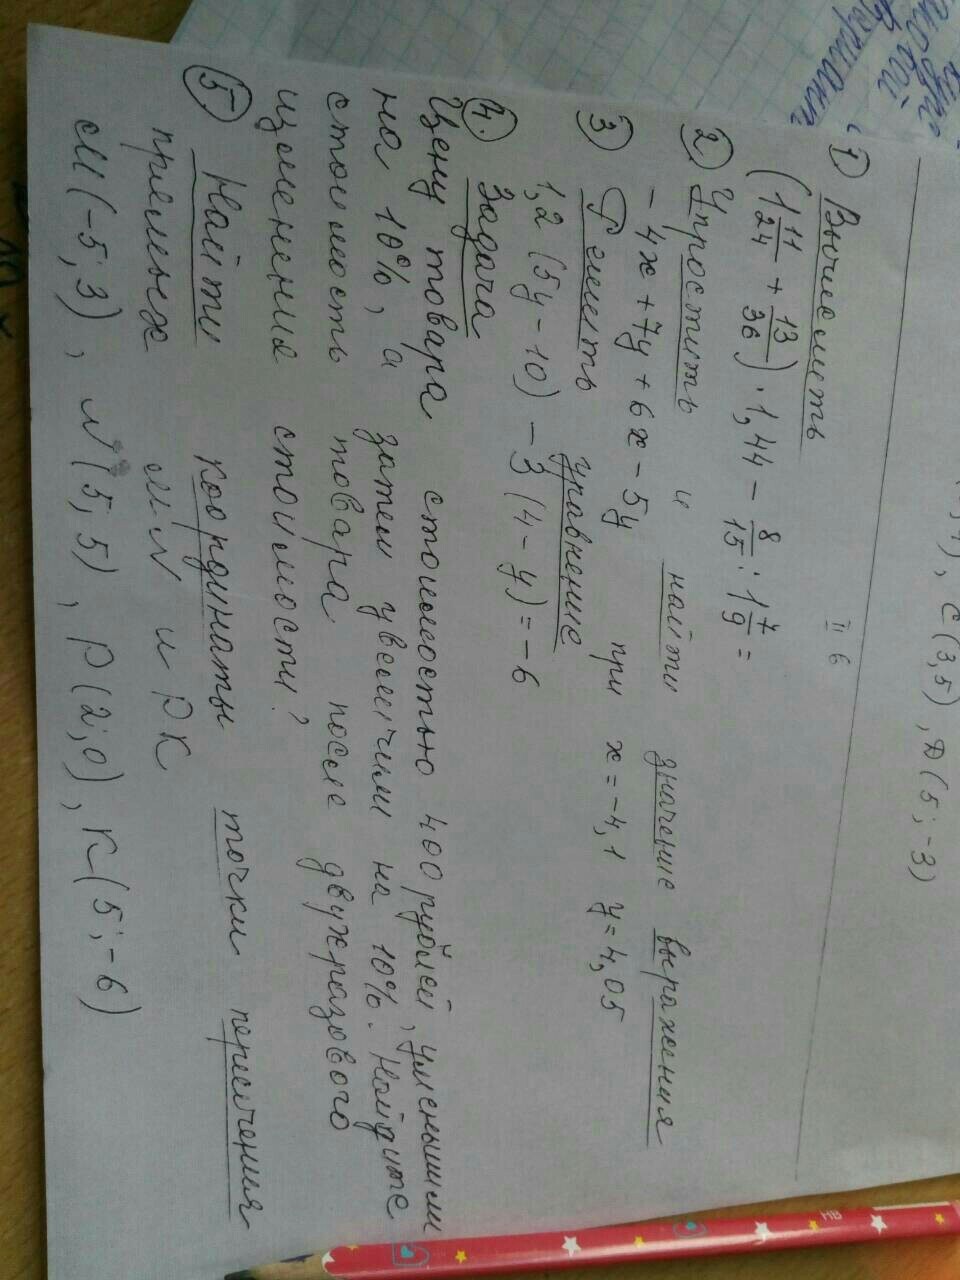 , С(3,5), D(5;-3)
II в
① Вычислить
(1 11/24 + 13/36) · 1,44 - 8/15 : 1 7/9 =
② Упростить и найти значение выражения
- 4x + 7y + 6x - 5y при x = -4,1 y = 4,05
③ Решить уравнение
1,2 (5y - 10) - 3 (4 - y) = -6
④. Задача
Цену товара стоимостью 400 рублей, уменьшили
на 10%, а затем увеличили на 10%. Найдите
стоимость товара после двухразового
изменения стоимости?
⑤ Найти координаты точки пересечения
прямых MN и РК
M(-5; 3), N(5; 5), P(2; 0), K(5; -6)
HB